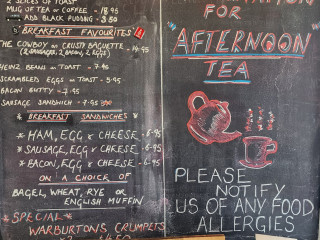 2 SLICES OF TOAST
MUG OF TEA OR COFFEE - 18.95
ADD BLACK PUDDING - 3.50
BREAKFAST FAVOURITES
THE COWBOY ON CRUSTY BAGUETTE - 14.95
(2 SAUSAGES, 2 BACON, 2 EGGS)
HEINZ BEANS ON TOAST - 7.95
SCRAMBLED EGGS ON TOAST - 5.95
BACON BUTTY - 7.95
SAUSAGE SANDWICH - 7.95
* BREAKFAST SANDWICHES *
* HAM, EGG & CHEESE - 6.95
* SAUSAGE, EGG & CHEESE - 6.95
* BACON, EGG & CHEESE - 6.95
ON A CHOICE OF
BAGEL, WHEAT, RYE OR
ENGLISH MUFFIN
*SPECIAL*
WARBURTONS CRUMPETS
FOR
"AFTERNOON"
TEA
PLEASE
NOTIFY
US OF ANY FOOD
ALLERGIES